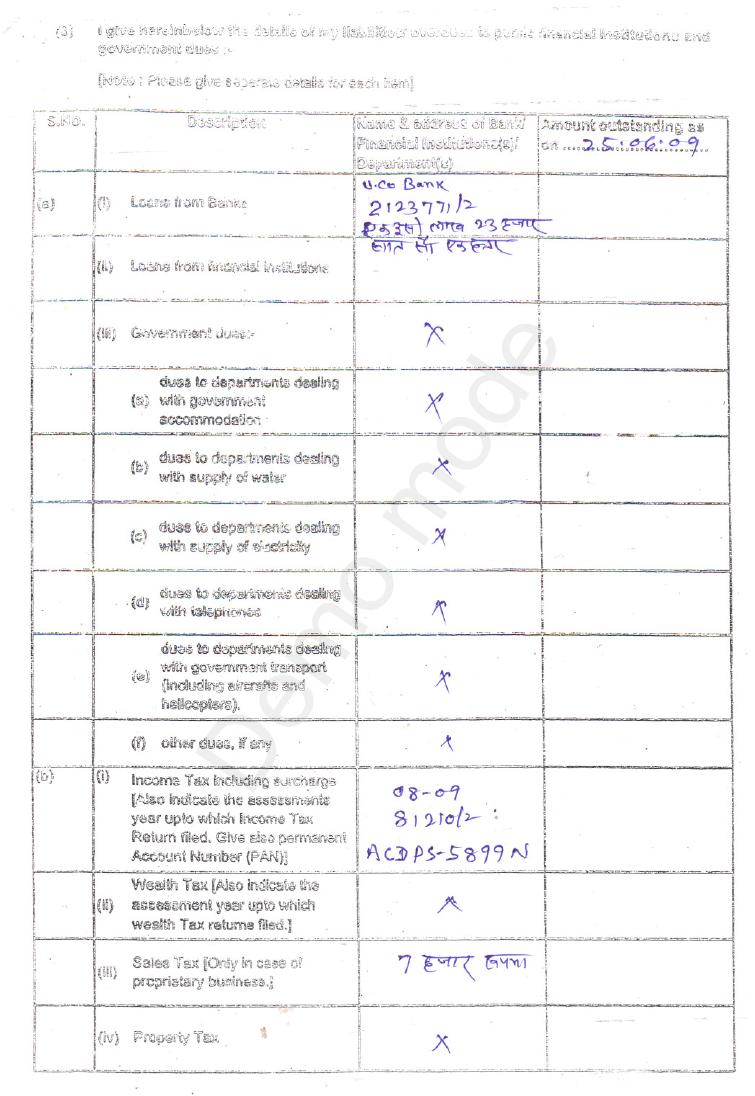 (3) I give hereinbelow the details of my liabilities/ overdues to public financial institutions and
government dues :-
[Note : Please give seperate details for each item]
S.No.
Description
Name & address of Bank/
Financial Institutions(s)/
Department(s)
Amount outstanding as
on ...25:06:09...
(a) (i) Loans from Banks
U.Co Bank
2123771/2
एक्इसो लाख 23 हजार
सात सौ एकहत्तर
(ii) Loans from financial institutions
(iii) Government dues:-
X
(a) dues to departments dealing
with government
accommodation
X
(b) dues to departments dealing
with supply of water
X
(c) dues to departments dealing
with supply of electricity
X
(d) dues to departments dealing
with telephones
X
(e) dues to departments dealing
with government transport
(including aircrafts and
helicopters).
X
(f) other dues, if any
X
(b) (i) Income Tax including surcharge
[Also indicate the assessments
year upto which Income Tax
Return filed. Give also permanent
Account Number (PAN)]
08-09
81210/2
ACDPS-5899N
(ii) Wealth Tax [Also indicate the
assessment year upto which
wealth Tax returns filed.]
X
(iii) Sales Tax [Only in case of
propriatary business.]
7 हजार रुपया
(iv) Property Tax
X
Demo mode